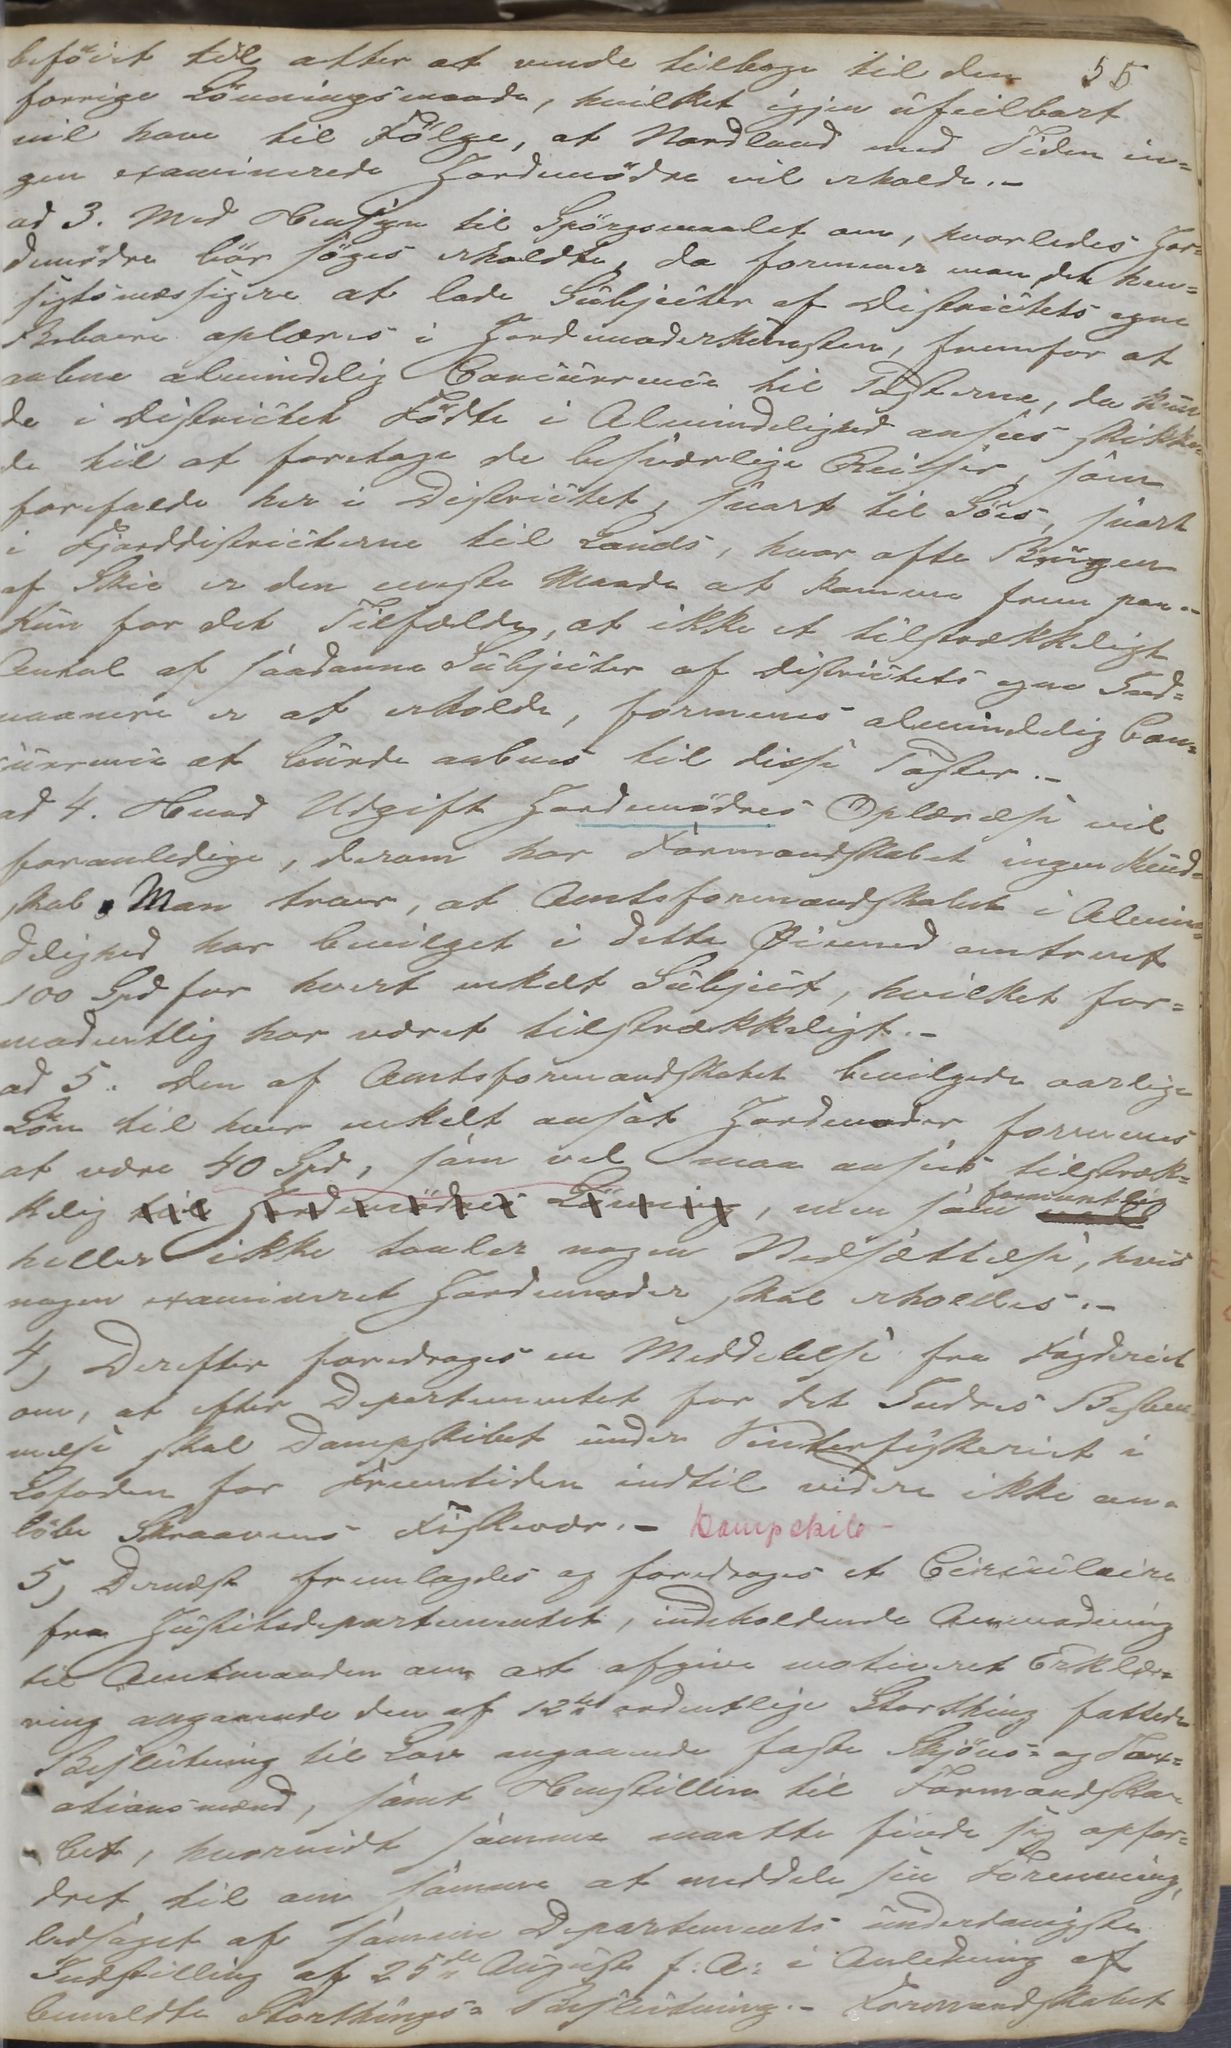 beföiet til atter at vende tilbage til den 55
forrige Lönningsmaade, hvilket igjen ufeilbart
vil have til Fölge, at Nordland med Tiden in-
gen examinerede Jordemödre vil erholde.-
ad 3. Med Hensyn til Spörgsmaalet om, hvorledes Jor-
demödre bör söges erholdte, da formener man det hen-
sigtsmæssigere at lade Subjecter af Districtets egne
Beboere oplæres i Jordemoderkunsten, fremfor at
aabne almindelig Concurrence til Posterne, da kun
de i Districtet Födte i Almindelighed ansees skikke-
de til at foretage de besværlige Reiser, som
forefalde her i Districtet, snart til Söes, snart
i Fjorddistricterne til Lands, hvor ofte Brugen
af Skie er den eneste Maade at komme frem paa.-
Kun for det Tilfælde, at ikke et tilstrækkeligt
Antal af saadanne Subjecter af Districtets egne Ind-
vaanere er at erholde, formenes almindelig Con-
currence at burde aabnes til disse Poster.-
ad 4. Hvad Udgift Jordemödres Oplærelse vil
foranledige, derom har Formandskabet ingen Kund-
skab. Man troer, at Amtsformandskabet i Almin-
delighed har bevilget i dette Øiemed omtrent
100 Spd for hvert enkelt Subject, hvilket for-
modentlig har været tilstrækkeligt.-
ad 5. Den af Amtsformandskabet bevilgede aarlige
Lön til hver enkelt ansat Jordemoder formenes
at være 40 Spd, som vel maa ansees tilstræk-
kelig til Jordemödres Lönning, men som formentlig
heller ikke taaler nogen Nedsættelse, hvis
nogen examineret Jordemoder skal erholdes.-
4, Derefter foredroges en Meddelelse fra Fogderiet
om, at efter Departementet for det Indres Bestem-
melse skal Dampskibet under Vinterfiskeriet i
Lofoden for Fremtiden indtil videre ikke an-
löbe Skraavens Fiskevær.- Dampskib-
5, Dernæst fremlagdes og foredroges et Circulaire
fra Justitsdepartementet, indeholdende Anmodning
til Amtmanden om at afgive motiveret Erklæ-
ring angaaende den af 12te ordentlige Storthing fattede
Beslutning til Lov angaaende faste Skjöns- og Tax-
ationsmænd, samt Henstillen til Formandska-
bet, hvorvidt samme maatte finde sig opfor-
dret til om samme at meddele sin Formening,
ledsaget af samme Departements underdanigste
Indstilling af 25de August f: A: i Anledning af
bemeldte Storthings- Beslutning.- Formandskabet